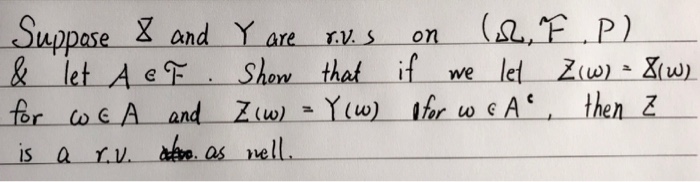 Suppose X and Y are r.v.s on (Ω, F, P)
& let A ∈ F. Show that if we let Z(ω) = X(ω)
for ω ∈ A and Z(ω) = Y(ω) for ω ∈ Aᶜ, then Z
is a r.v. as well.